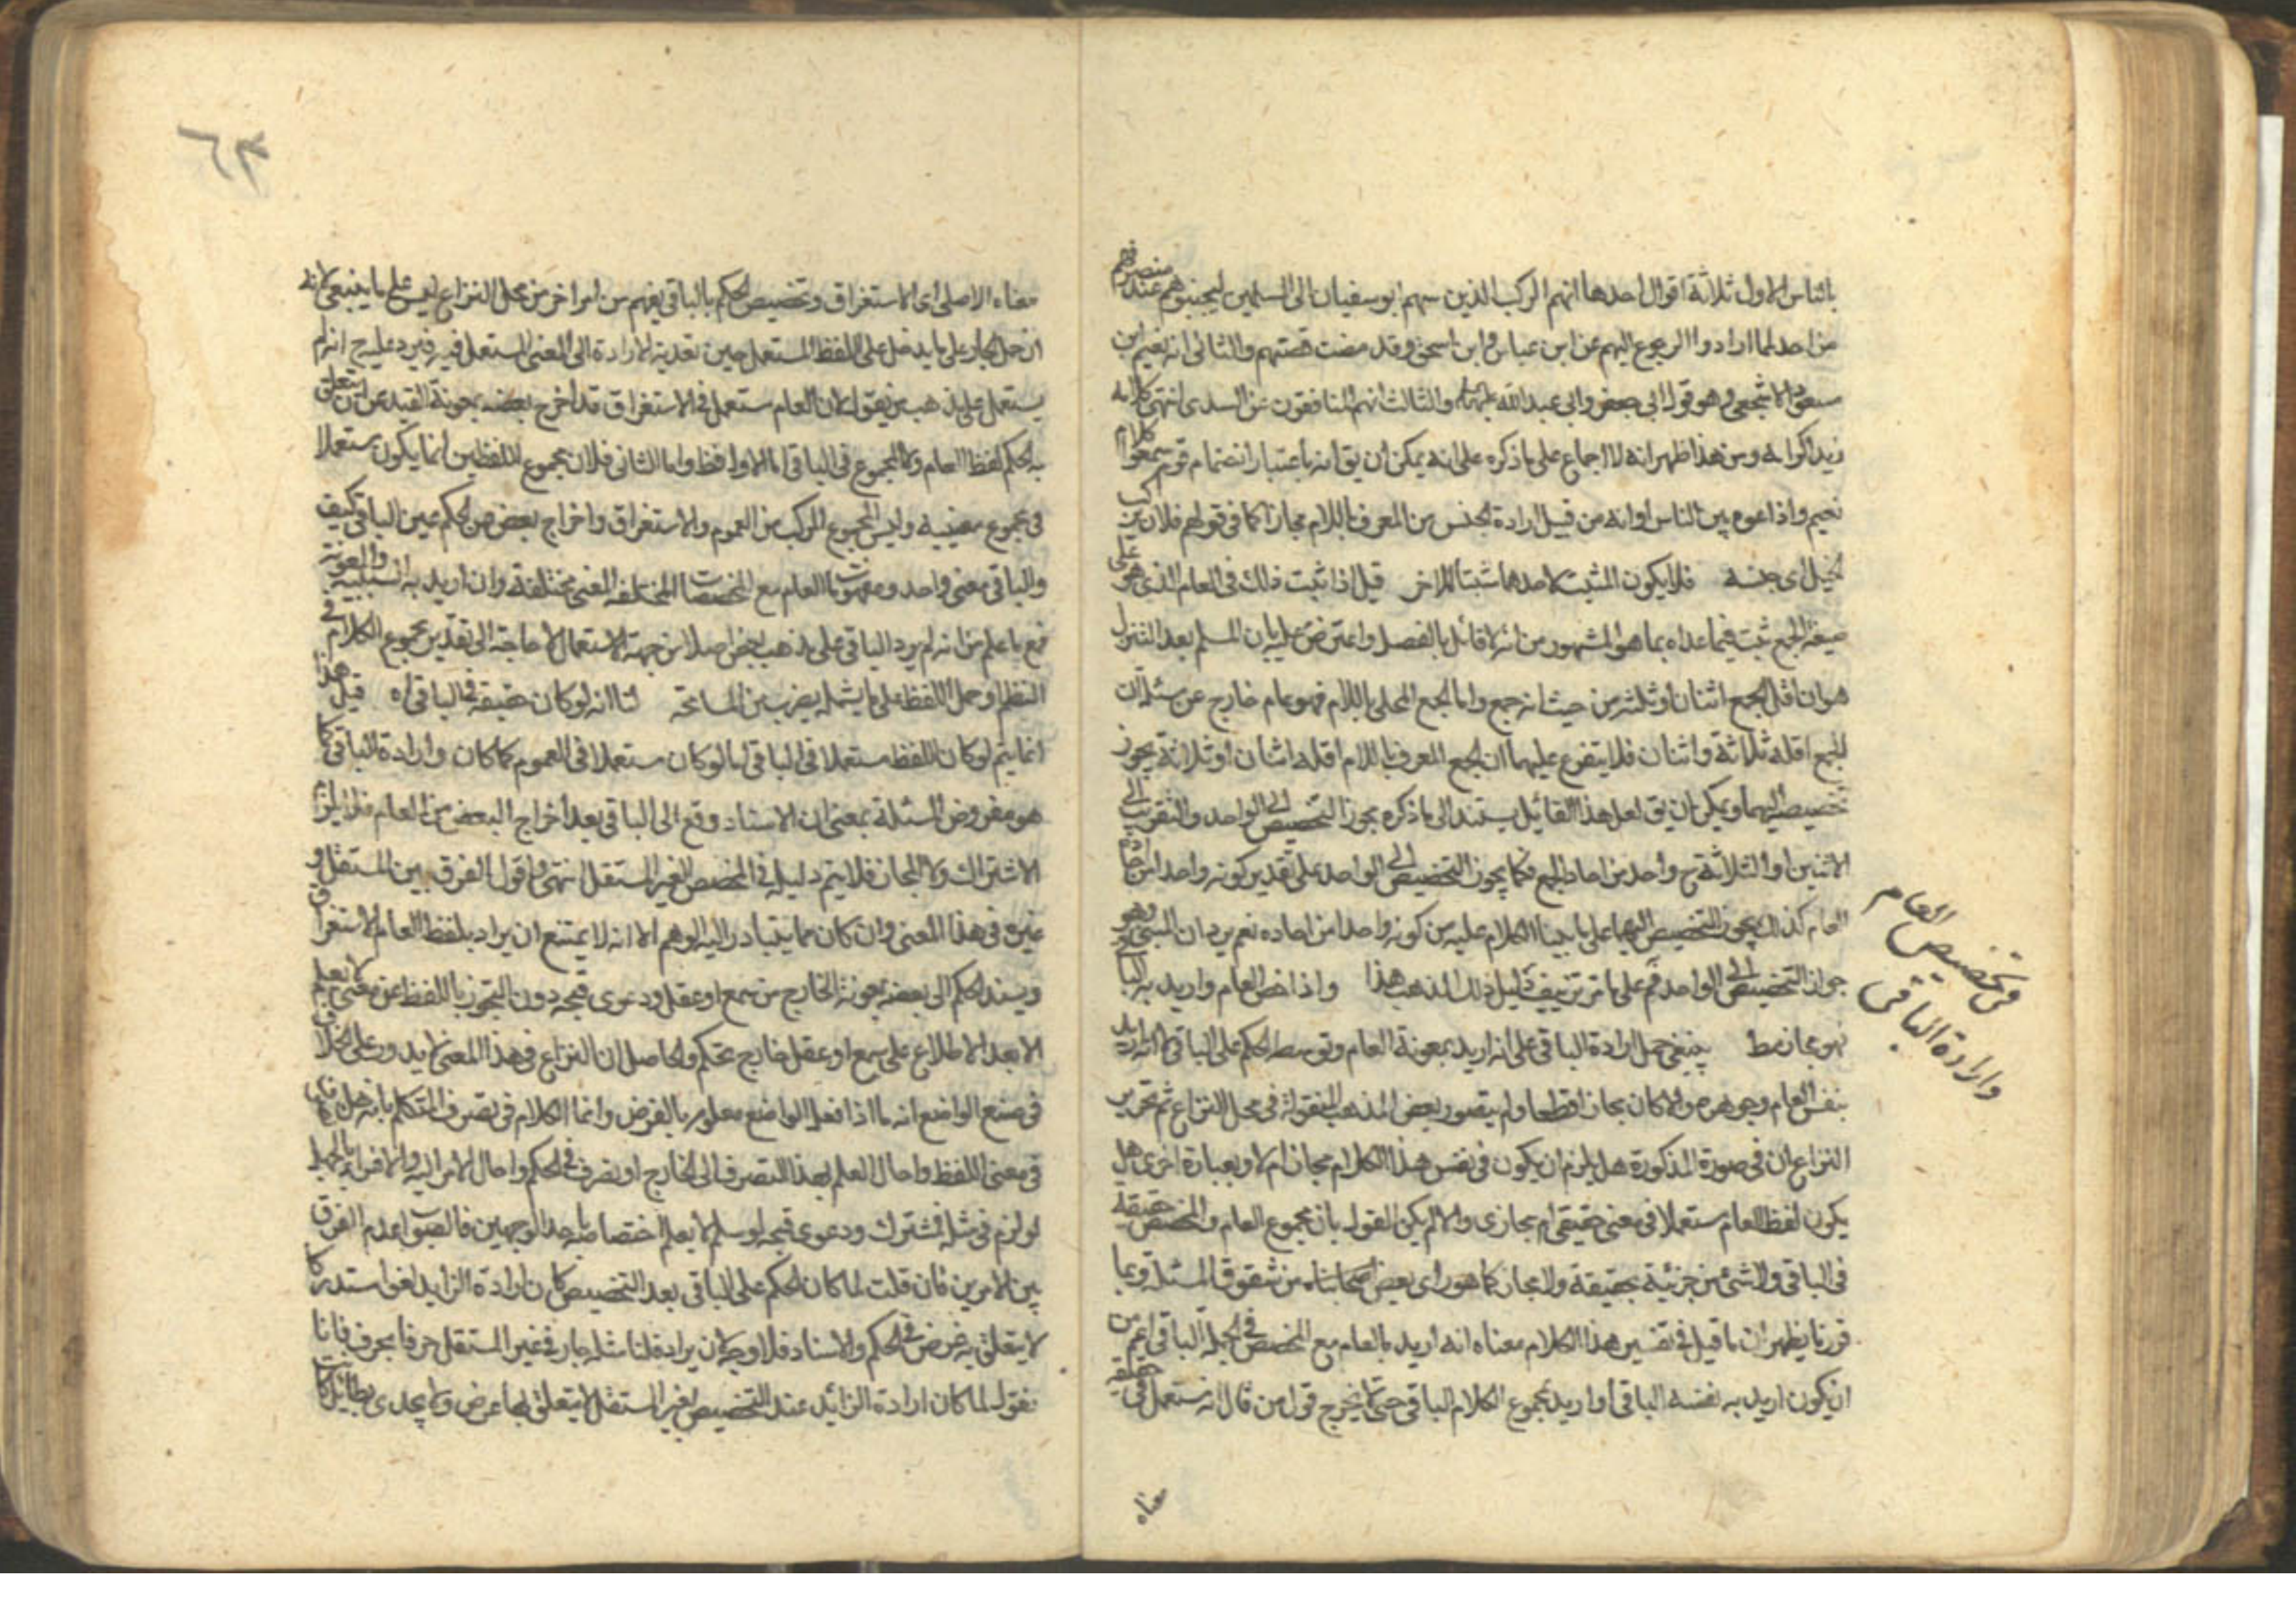 بالناس الاول ثلاثة اقوال احدها انهم الركب الذين ابو سفيان الى المسلمين ليجبنوهم عند منصرفهم
من احد لما ارادوا الرجوع اليهم عن ابن عباس وابن اسحق وقد مضت قصتهم والثانى انه نعيم ابن
مسعود الاشجعى وهو قول ابى جعفر وابى عبد الله والثالث انهم المنافقون عن السدى انتهى كلامه
ومن هذا ظهر انه لا اجماع على ما ذكره على انه يمكن ان يق انه باعتبار انضمام قوم سمعوا كلام
نعيم واذاعوه بين الناس او انه من قبيل ارادة الجنس من المعرف باللام مجازا كما فى قولهم فلان يركب
الخيل اى جنسه فلا يكون المثبت لاحدهما مثبتا للاخر قيل اذا ثبت ذلك فى العام الذى هو على
صيغة الجمع ثبت فيما عداه بما هو المشهور من انه لا قائل بالفصل واعترض عليه بان المسلم بعد التنزل
هو ان اقل الجمع اثنان او ثلثه من حيث انه جمع واما الجمع المحلى باللام فهو عام خارج عن مسئلة ان
الجمع اقله ثلاثة واثنان فلا يتفرع عليهما ان الجمع المعرف باللام اقله اثنان او ثلاثة يجوز
تخصيصه اليهما ويمكن ان يق لعل هذا القائل يستند الى ما ذكره مجوز التخصيص الى الواحد والتقريب الى
الاثنين او الثلاثة ح واحد من احاد الجمع فكما يجوز التخصيص الى الواحد على تقدير كونه واحدا من احاد
العام كذلك يجوز التخصيص اليهما على ما بينا الكلام عليه من كونه واحدا من احاده نعم يرد ان المبنى وهو
جواز التخصيص الى الواحد على ما مر تزييف دليل ذلك المذهب هذا واذا خص العام واريد به الباقى
فهو مجاز مط ينبغى حمل ارادة الباقى على انه اريد بمعونة العام وتوسط الحكم على الباقى لا انه اريد
بنفس العام وجوهره والا كان مجازا قطعا ولم يتصور بعض المذاهب المنقولة فى محل النزاع ثم تحرير
النزاع ان فى صورة المذكورة هل يلزم ان يكون فى نفس هذا الكلام مجاز ام لا وبعبارة اخرى هل
يكون لفظ العام مستعملا فى معنى حقيقى ام مجازى والا لم يكن القول بان مجموع العام والمخصص حقيقة
فى الباقى ولا شئ من جزئيه بحقيقة ولا مجاز كما هو راى بعض اصحابنا من شقوق المسئلة وبما
قررنا يظهر ان ما قيل فى تفسير هذا الكلام معناه انه اريد بالعام مع المخصص فى الجملة الباقى اعم من
ان يكون اريد به نفسه الباقى او اريد بمجموع الكلام الباقى حتى لا يخرج قول من قال انه مستعمل فى
معناه
فى تخصيص العام
وارادة الباقى
٦٤
معناه الاصلى اى الاستغراق وتخصيص الحكم بالباقى يفهم من امر اخر من محل النزاع ليس على ما ينبغى لانه
ان حمل المجاز على ما يدخل على اللفظ المستعمل حين تعدية الارادة الى المعنى المستعمل فيه فيرد عليه ح انه لم
يستعمل على مذهب من يقول لان العام مستعمل فى الاستغراق قد اخرج بعضه بمعونة القيد عن ان يتعلق
به الحكم لفظ العام ولا المجموع فى الباقى اما الاول فظ واما الثانى فلان مجموع اللفظين انما يكون مستعملا
فى مجموع معنييه وليس المجموع المركب من العموم والاستغراق واخراج بعض من الحكم عين الباقى كيف
والباقى معنى واحد ومفهومات العام مع المخصصات المختلفة المعنى مختلفة وان اريد به السببية والمعونة
فمع ما علم من انه لم يرد الباقى على مذهب بعض اصلا من جهة الاستعمال لا حاجة الى تقدير مجموع الكلام فى
النظم او حمل اللفظ على ما يشمله بضرب من المسامحة لنا انه لو كان حقيقة فى الباقى اه قيل هذا
انما يتم لو كان اللفظ مستعملا فى الباقى اما لو كان مستعملا فى العموم كما كان وارادة الباقى كما
هو مفروض المسئلة بمعنى ان الاسناد وقع الى الباقى بعد اخراج البعض من العام فلا يلزم
الاشتراك ولا المجاز فلا يتم دليله فى المخصص الغير المستقل انتهى واقول الفرق بين المستقل و
غيره فى هذا المعنى وان كان مما يتبادر اليه الوهم الا انه لا يمتنع ان يراد بلفظ العام الاستغراق
ويسند الحكم الى بعضه بمعونة الخارج من سمع او عقل ودعوى قبحه دون التجوز باللفظ عن معنى لا يعلم
الا بعد الاطلاع على سمع او عقل خارج تحكم والحاصل ان النزاع فى هذا المعنى لا يدور على الخلاف
فى صنع الواضع انه ما اذا فعل الواضع معلوم بالفرض وانما الكلام فى تصرف المتكلم بانه هل
فى معنى اللفظ واحال العلم بهذا التصرف الى الخارج او تصرف فى الحكم واحال الامر اليه والاقرب بالجملة
لو لزم فى مثله اشتراك ودعوى قبحه لو سلم لا يعلم اختصاصه باحد الوجهين فالصواب عدم الفرق
بين الامرين فان قلت لما كان الحكم على الباقى بعد التخصيص كان ارادة الزايد لغوا مستدركا
لا يتعلق به غرض فى الحكم والاسناد فلا وجه لان يراد قلنا مثله جار فى غير المستقل حرفا بحرف فانا
نقول لما كان ارادة الزائد عند التخصيص بغير المستقل لا يتعلق بها غرض ولا يجدى بطائل